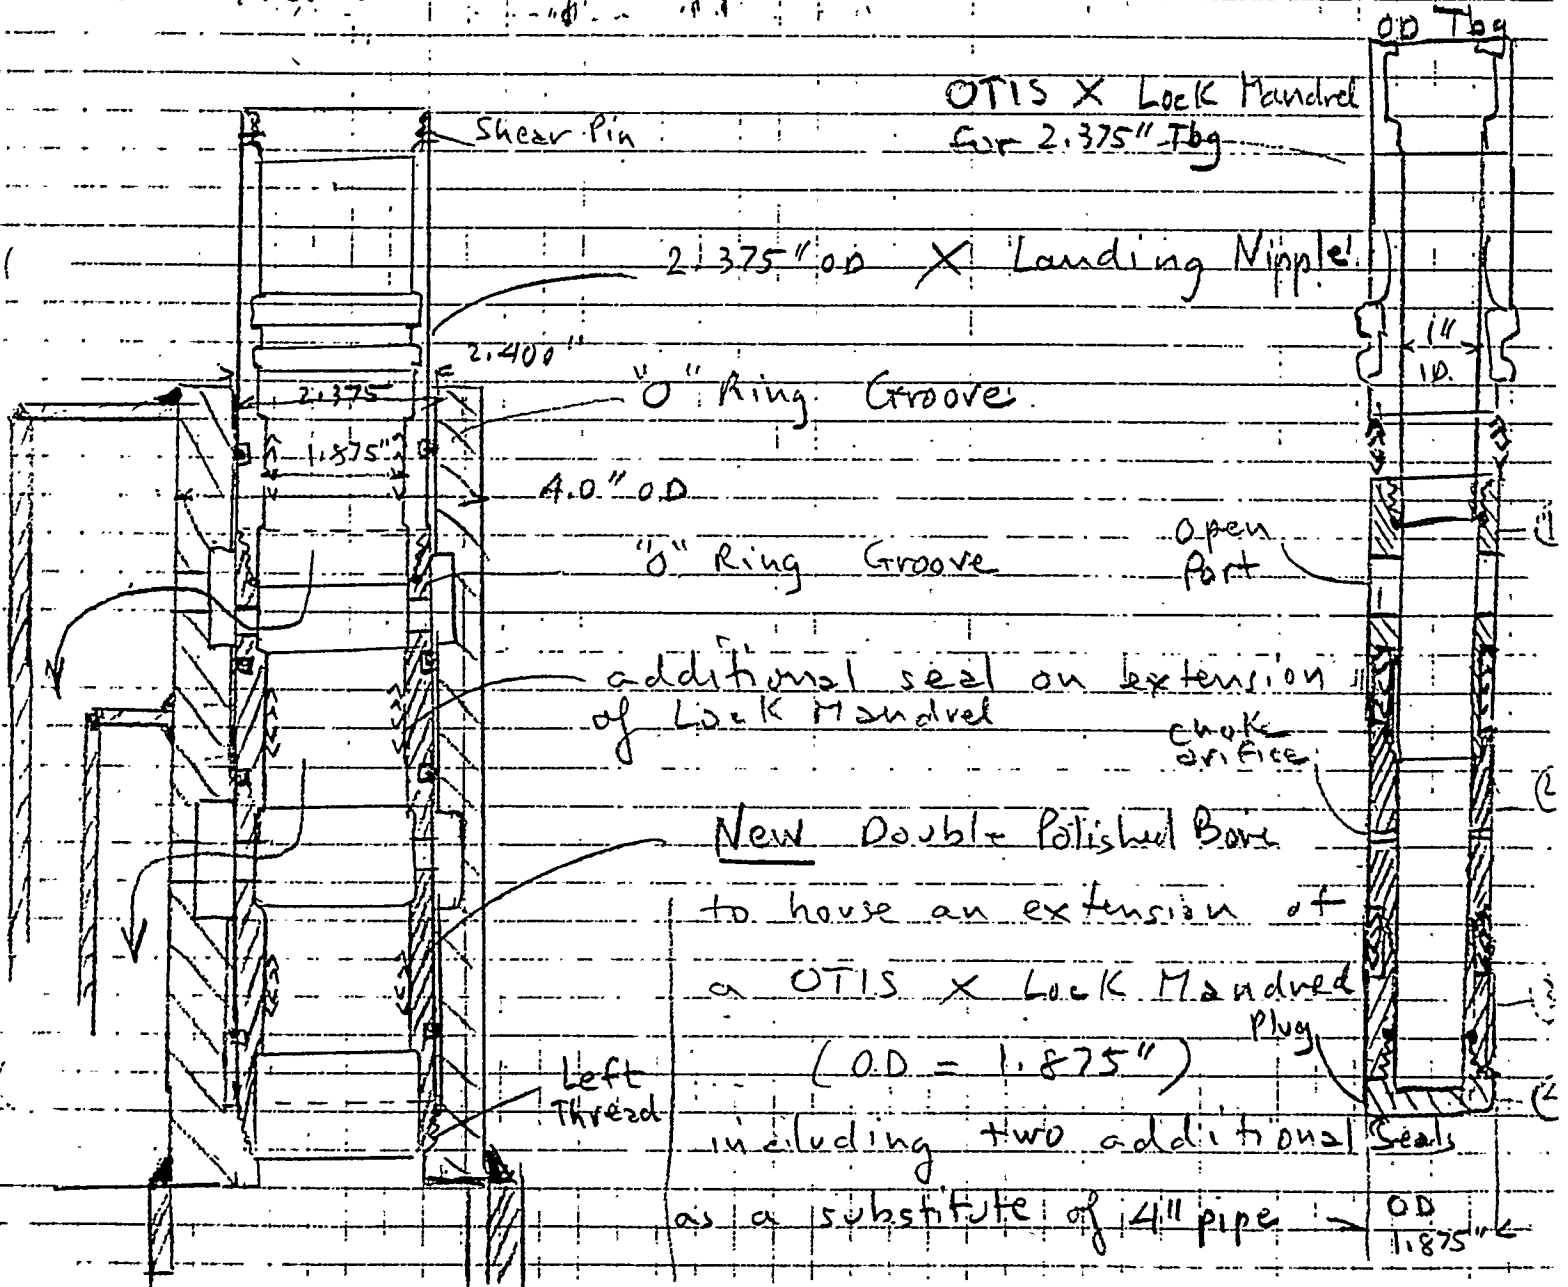 OD Tbg
OTIS X Lock Mandrel
for 2.375" Tbg
Shear Pin
2.375" OD X Landing Nipple
1"
ID.
2.400"
2.375
"O" Ring Groove
1.875"
4.0" OD
"O" Ring Groove
Open
Port
additional seal on extension
of Lock Mandrel
choke
orifice
New Double Polished Bore
to house an extension of
a OTIS X Lock Mandrel
Plug
(OD = 1.875")
Left
Thread
including two additional Seals
as a substitute of 4" pipe
OD
1.875"